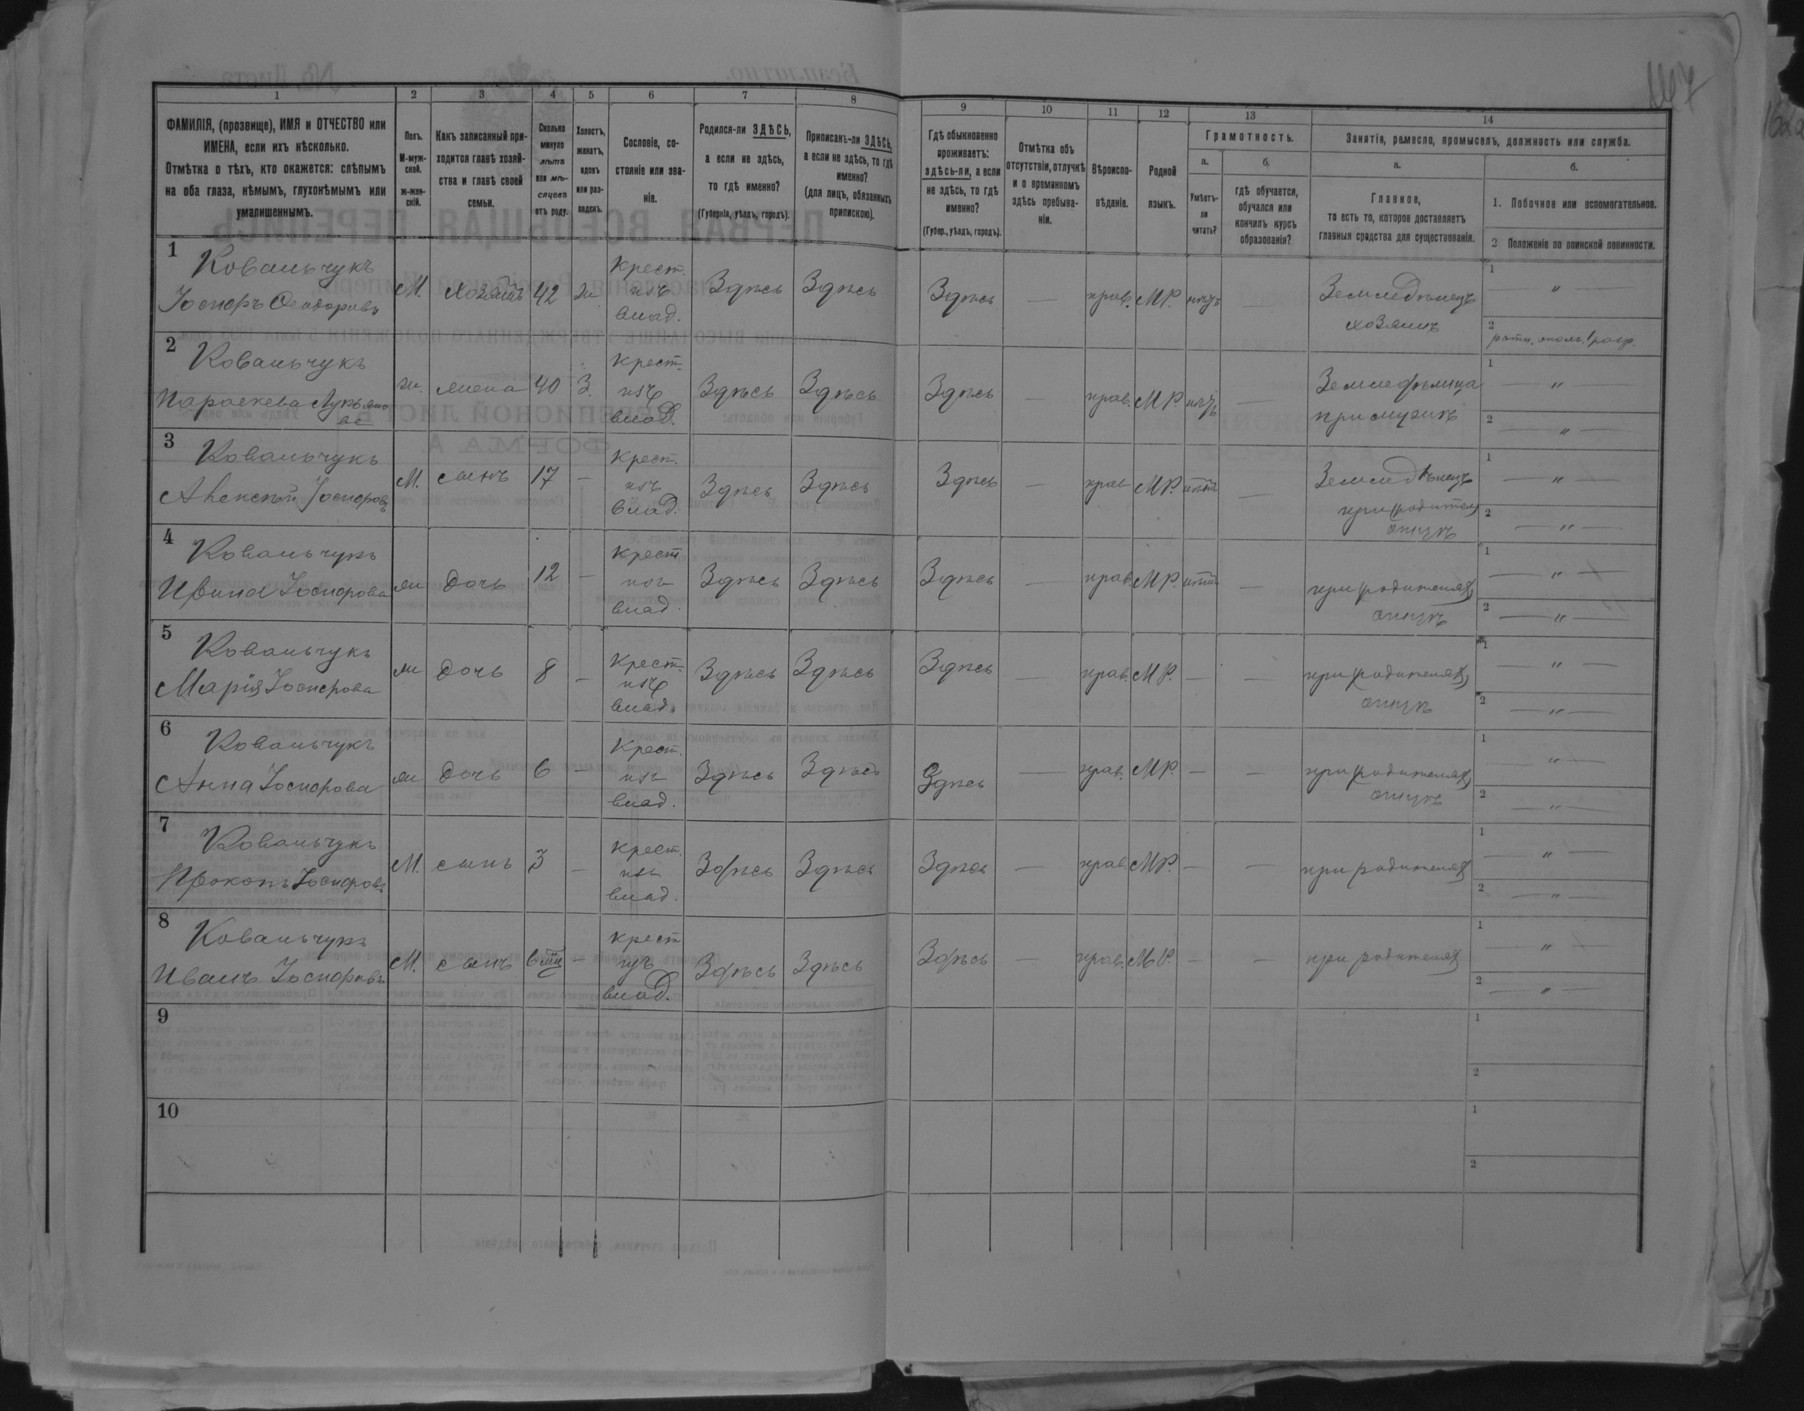 1 2 3 4 5 6 7 8 9 10 11 12 13 14
ФАМИЛІЯ, (прозвище), ИМЯ и ОТЧЕСТВО или
ИМЕНА, если ихъ нѣсколько.
Отмѣтка о тѣхъ, кто окажется: слѣпымъ
на оба глаза, нѣмымъ, глухонѣмымъ или
умалишеннымъ.
Полъ.
М-муж-
ской.
ж-жен-
скій.
Какъ записанный при-
ходится главѣ хозяй-
ства и главѣ своей
семьи.
Сколько
минуло
лѣтъ
или мѣ-
сяцевъ
отъ роду.
Холостъ,
женатъ,
вдовъ
или раз-
веденъ.
Сословіе, со-
стояніе или зва-
ніе.
Родился-ли ЗДѢСЬ,
а если не здѣсь,
то гдѣ именно?
(Губернія, уѣздъ, городъ).
Приписанъ-ли ЗДѢСЬ,
а если не здѣсь, то гдѣ
именно?
(для лицъ, обязанныхъ
припискою).
Гдѣ обыкновенно
проживаетъ:
здѣсь-ли, а если
не здѣсь, то гдѣ
именно?
(Губер., уѣздъ, городъ).
Отмѣтка объ
отсутствіи, отлучкѣ
и о временномъ
здѣсь пребыва-
ніи.
Вѣроиспо-
вѣданіе.
Родной
языкъ.
Грамотность.
а.
Умѣетъ-
ли
читать?
б.
гдѣ обучается,
обучался или
кончилъ курсъ
образованія?
Занятіе, ремесло, промыселъ, должность или служба.
а.
Главное,
то есть то, которое доставляетъ
главныя средства для существованія.
б.
1. Побочное или вспомогательное.
2 Положеніе по воинской повинности.
1
Ковальчукъ
Іосифъ Феодоровъ
М. хозяинъ 42 ж
Крест.
изъ
влад.
Здѣсь Здѣсь Здѣсь — прав. МР. —
Земледѣлецъ
хозяинъ
1 — " —
2
2
Ковальчукъ
Параскева Лукьяно
ва
ж. жена 40 З.
Крест.
изъ
влад.
Здѣсь Здѣсь Здѣсь — прав. МР. —
Земледѣлица
при мужѣ
1 — " —
2 — " —
3
Ковальчукъ
Алексѣй Іосифовъ
М. сынъ 17 —
Крест.
изъ
влад.
Здѣсь Здѣсь Здѣсь — прав МР. —
Земледѣлецъ
при родител
1 — " —
2 — " —
4
Ковальчукъ
Іосифова
ж дочь 12 —
Крест
изъ
влад.
Здѣсь Здѣсь Здѣсь — прав МР. —
при родителях
1 — " —
2 — " —
5
Ковальчукъ
Марія Іосифова
ж дочь 8 —
Крест.
изъ
влад.
Здѣсь Здѣсь Здѣсь — прав. МР. — —
при родителях
1 — " —
2 — " —
6
Ковальчукъ
Анна Іосифова
ж дочь 6 —
Крест.
изъ
влад.
Здѣсь Здѣсь Здѣсь — прав. МР. — —
при родителях
1 — " —
2 — " —
7
Ковальчукъ
Прокопъ Іосифовъ
М. сынъ 3 —
Крест.
изъ
влад.
Здѣсь Здѣсь Здѣсь — прав. МР. — —
при родителях
1 — " —
2 — " —
8
Ковальчукъ
Иванъ Іосифовъ
М. сынъ 6 —
Крест
изъ
влад.
Здѣсь Здѣсь Здѣсь — прав. МР. — —
при родителях
1 — " —
2 — " —
9
1
2
10
1
2